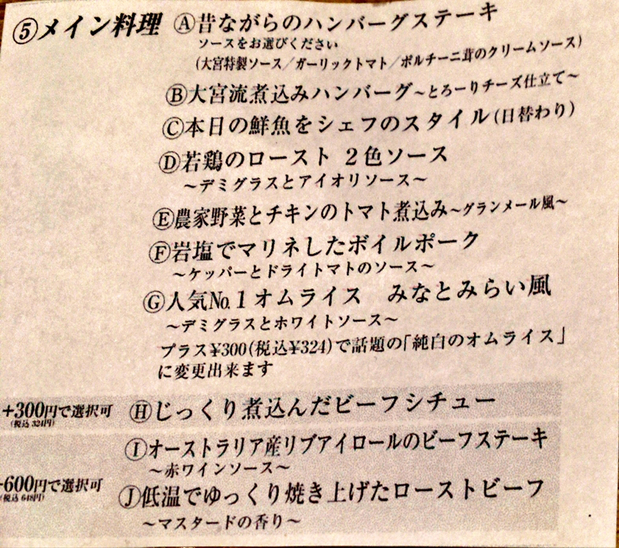 ⑤メイン料理 Ⓐ昔ながらのハンバーグステーキ
ソースをお選びください
(大宮特製ソース/ガーリックトマト/ポルチーニ茸のクリームソース)
Ⓑ大宮流煮込みハンバーグ~とろーりチーズ仕立て~
Ⓒ本日の鮮魚をシェフのスタイル(日替わり)
Ⓓ若鶏のロースト 2色ソース
~デミグラスとアイオリソース~
Ⓔ農家野菜とチキンのトマト煮込み~グランメール風~
Ⓕ岩塩でマリネしたボイルポーク
~ケッパーとドライトマトのソース~
Ⓖ人気No.1オムライス みなとみらい風
~デミグラスとホワイトソース~
プラス¥300(税込¥324)で話題の「純白のオムライス」
に変更出来ます
+300円で選択可 Ⓗじっくり煮込んだビーフシチュー
(税込 324円)
Ⓘオーストラリア産リブアイロールのビーフステーキ
~赤ワインソース~
+600円で選択可 Ⓙ低温でゆっくり焼き上げたローストビーフ
(税込 648円)
~マスタードの香り~